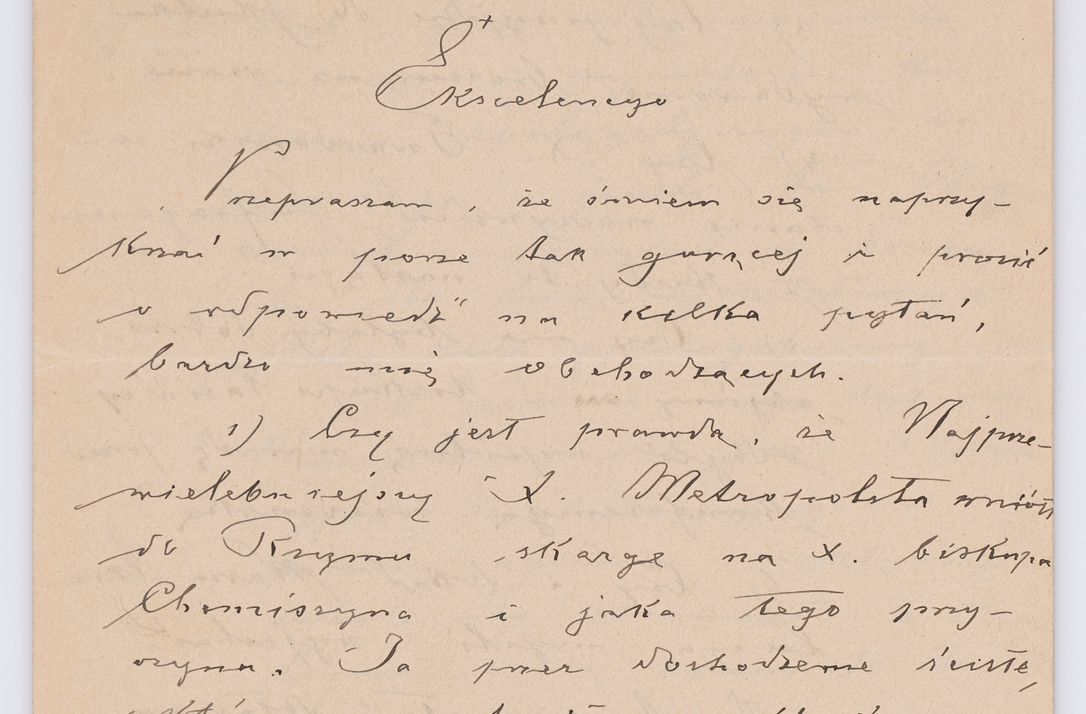 +
Ekscelencyo
Przepraszam, że śmiem się naprzy-
krzać w porze tak gorącej i prosić
o odpowiedź na kilka pytań,
bardzo mię obchodzących.
1) Czy jest prawdą, że Najprze-
wielebniejszy X. Metropolita wniósł
do Rzymu skargę na X. biskupa
Chomiszyna i jaka tego przy-
czyna. Ja przez dochodzenie ścisłe,